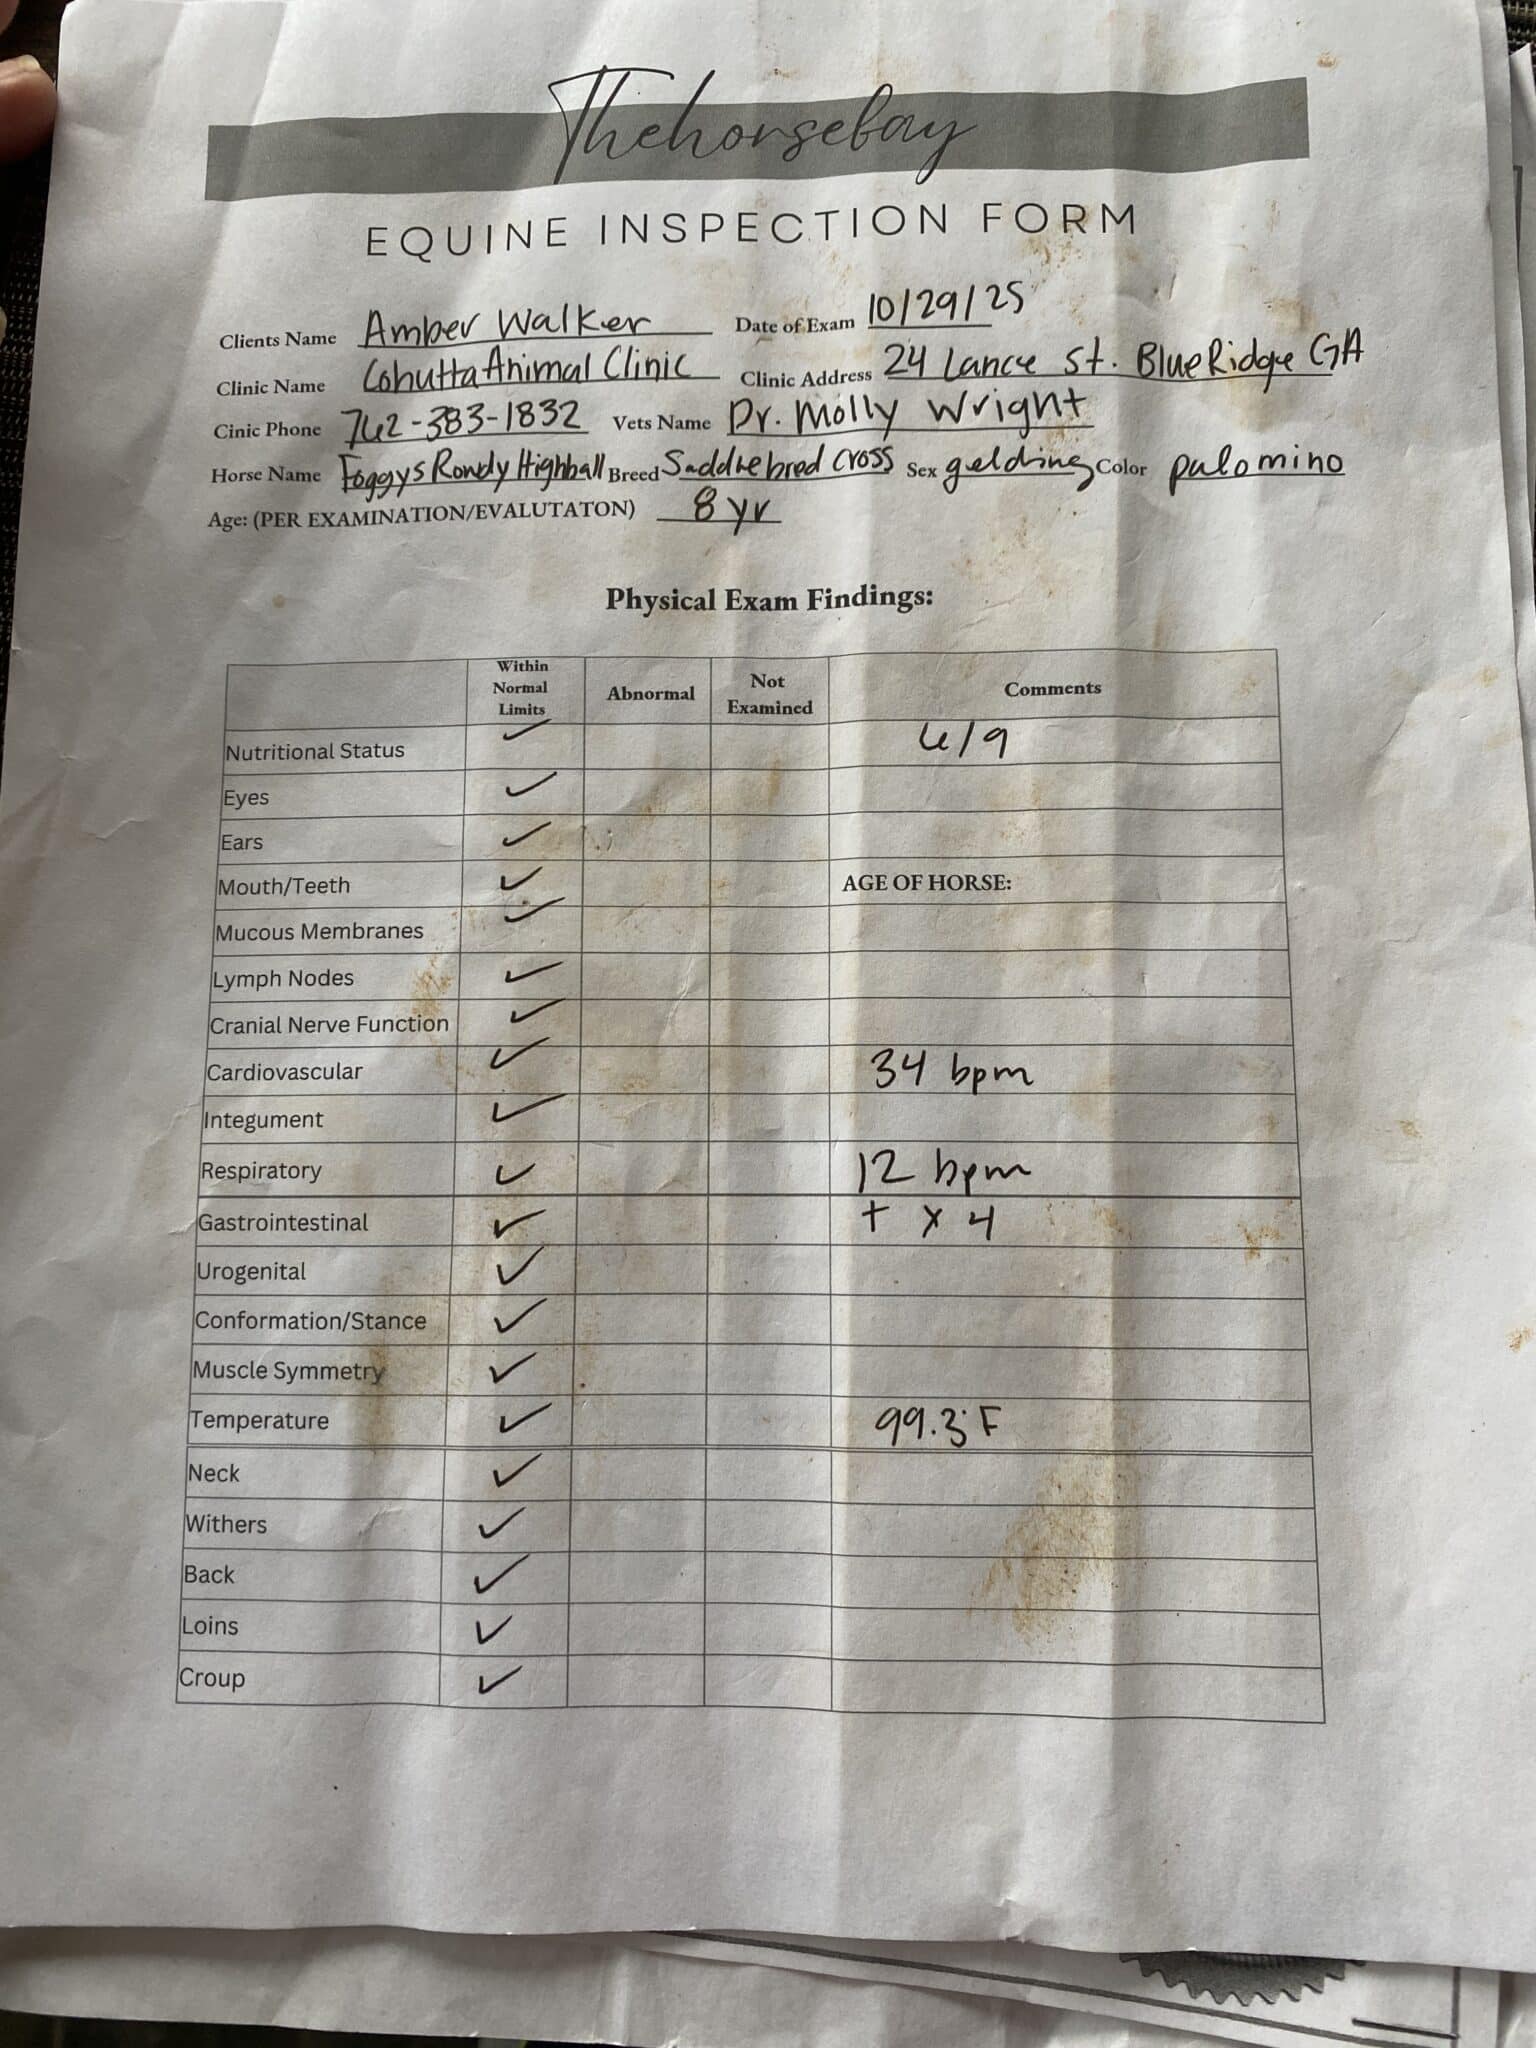 Thehorsebay
EQUINE INSPECTION FORM
Clients Name Amber Walker Date of Exam 10/29/25
Clinic Name Cohutta Animal Clinic Clinic Address 24 Lance St. Blue Ridge GA
Cinic Phone 762-383-1832 Vets Name Dr. Molly Wright
Horse Name Foggys Rowdy Highball Breed Saddlebred cross Sex gelding Color palomino
Age: (PER EXAMINATION/EVALUTATON) 8 yr
Physical Exam Findings:
Within Normal Limits Abnormal Not Examined Comments
Nutritional Status ✓ 6/9
Eyes ✓
Ears ✓
Mouth/Teeth ✓ AGE OF HORSE:
Mucous Membranes ✓
Lymph Nodes ✓
Cranial Nerve Function ✓
Cardiovascular ✓ 34 bpm
Integument ✓
Respiratory ✓ 12 bpm
Gastrointestinal ✓ + x 4
Urogenital ✓
Conformation/Stance ✓
Muscle Symmetry ✓
Temperature ✓ 99.3°F
Neck ✓
Withers ✓
Back ✓
Loins ✓
Croup ✓